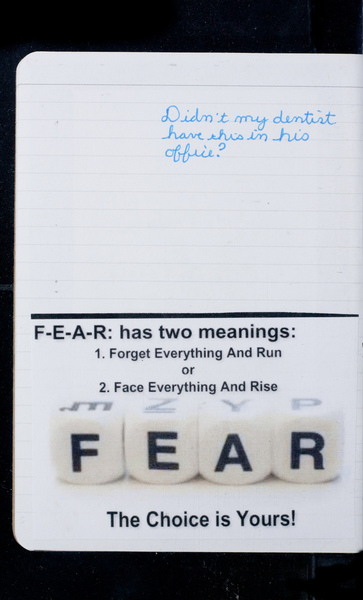 Didn't my dentist
have this in his
office?
F-E-A-R: has two meanings:
1. Forget Everything And Run
or
2. Face Everything And Rise
Z Y P
F E A R
The Choice is Yours!